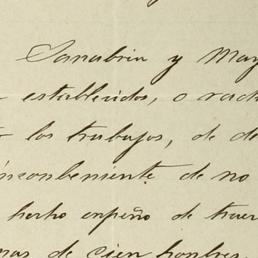 Sanabria y May
establecidos, o radi
los trabajos, de de
inconbeniente de no
hecho enpeño de traer
mas de cien honbres